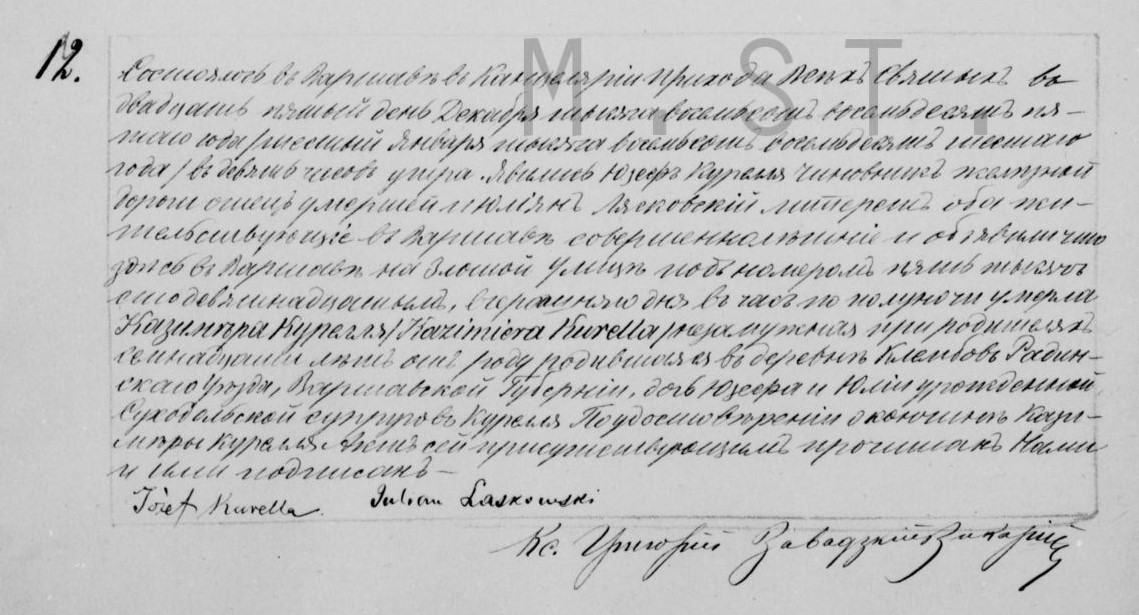 12.
M . S T I
Состоялось въ Варшавѣ въ Канцеляріи Прихода Всѣхъ Святыхъ въ
двадцать пятый день Декабря тысяча восемьсотъ восемьдесятъ пя-
таго года /шестый Января тысяча восемьсотъ восемьдесятъ шестаго
года/ въ девять часовъ утра. Явились Юзефъ Курелля чиновникъ желѣзной
дороги отецъ умершей и Юліянъ Лясковскій оба жи-
тельствующіе въ Варшавѣ совершеннолѣтніе и объявили что
здѣсь въ Варшавѣ на Злотой улицѣ подъ номеромъ пять тысячъ
сто девятнадцатымъ, вчерашняго дня въ часъ по полуночи умерла
Казимѣра Курелля /Kazimiera Kurella/ незамужняя при родителяхъ
семнадцати лѣтъ отъ роду родившаяся въ деревнѣ Клембовъ Радин-
скаго Уѣзда, Варшавской Губерніи, дочь Юзефа и Юліи урожденной
Суходольской супруговъ Курелля По удостовѣреніи о кончинѣ Кази-
мѣры Курелля Актъ сей присутствующимъ прочитанъ Нами
и ими подписанъ —
Józef Kurella. Julian Laskowski
Кс. Григорій Завадзкій Викарій